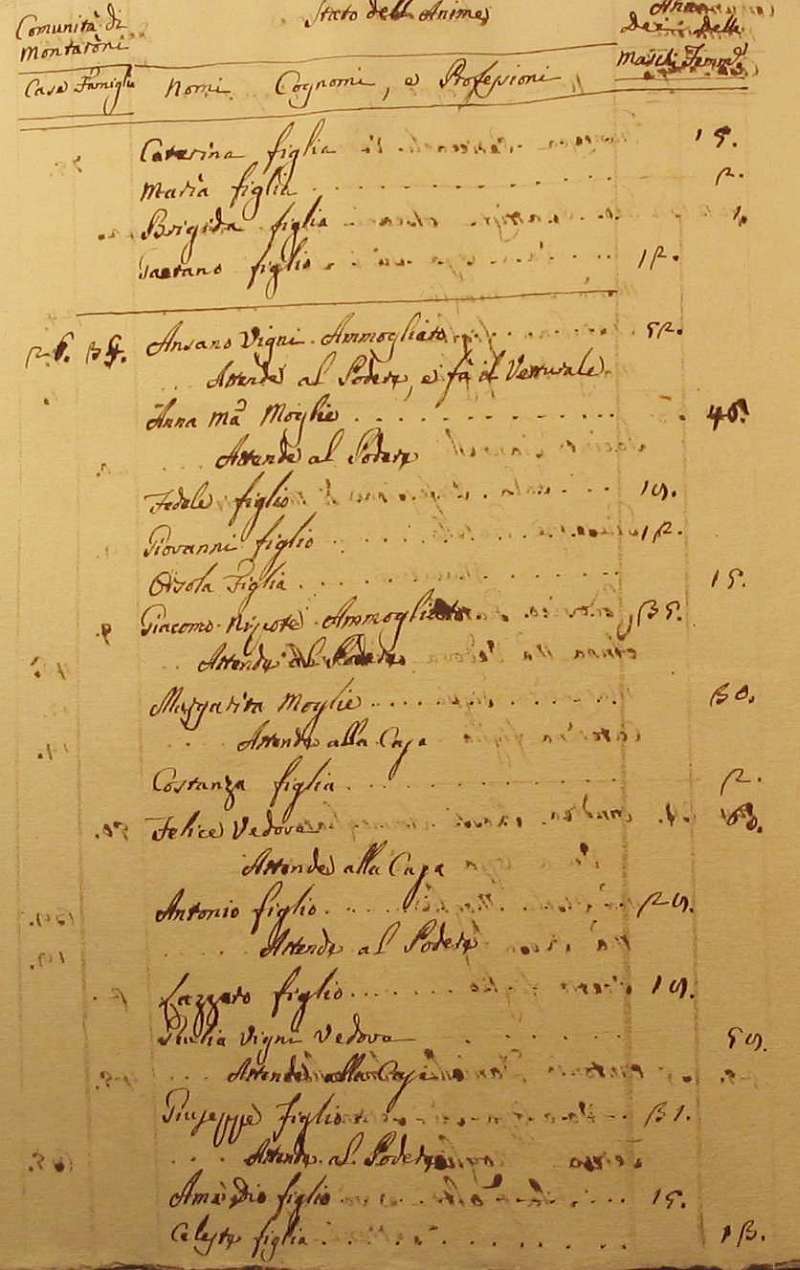 Comunità di
Montaroni
Stato dell Anime
Anno
Dei delle
Maschi Femm.e
Case Famiglie Nomi Cognomi, e Professioni
Caterina figlia 15.
Maria figlia . . . . . . . . . 2.
Brigida figlia 1.
Gaetano figlio . . . . 12.
Ansano Vigni Ammogliato . . . . . . 52.
Attende al Podere, e fà il Vetturale
Anna Ma Moglie . . . . . . . . . . 46.
Attende al Podere
Fedele figlio 19.
Giovanni figlio 12.
Orsola Figlia . . . . . . . . 15.
Giacomo Nipote Ammogliato. 35.
Attende al Podere
Margarita Moglie . . . . . . . . . 30.
Attende alla Casa
Costanza figlia . . . . . . . . . 2.
Felice Vedova
Attende alla Casa
Antonio figlio . . . . 29.
Attende al Podere
Lazzaro figlio . . . . . 19.
Giulia Vigni Vedova 59.
Attende alla Casa
Giuseppe figlio 31.
Attende al Podere
Amadio figlio 15.
Celeste figlia . . . . . . . . 13.